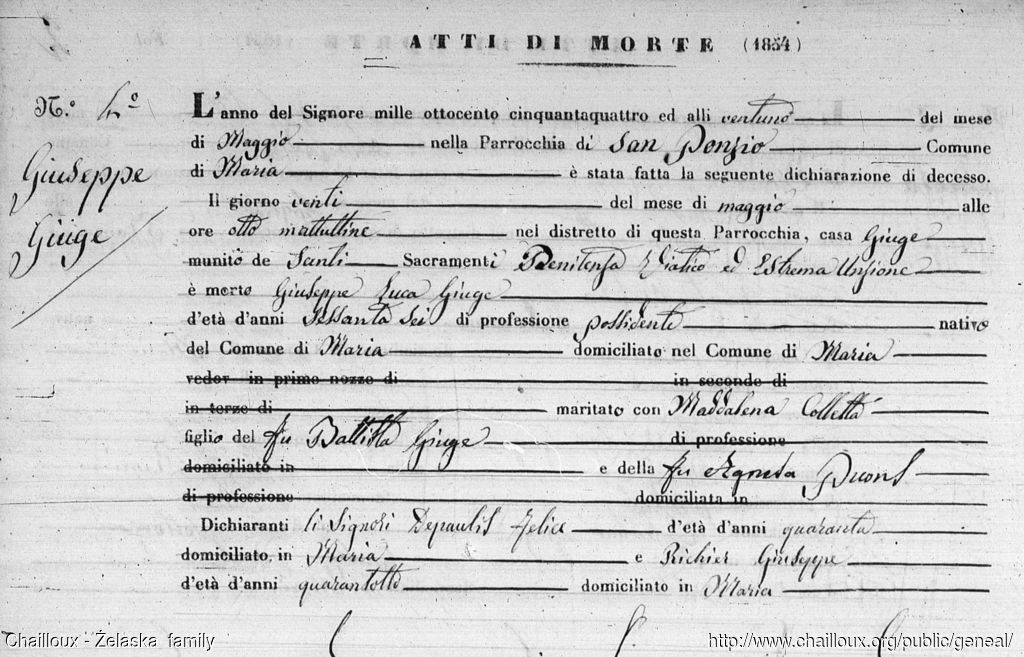 ATTI DI MORTE (1854)
N.º 4º
Giuseppe
Giuge
L'anno del Signore mille ottocento cinquantaquattro ed alli ventuno del mese
di Maggio nella Parrocchia di San Ponzio Comune
di Maria è stata fatta la seguente dichiarazione di decesso.
Il giorno venti del mese di maggio alle
ore otto mattuttine nel distretto di questa Parrocchia, casa Giuge
munito de Santi Sacramenti Penitenza Viatico ed Estrema Unzione
è morto Giuseppe Luca Giuge
d'età d'anni Sessanta Sei di professione possidente nativo
del Comune di Maria domiciliato nel Comune di Maria
vedov in prime nozze di in seconde di
in terze di maritato con Maddalena Colletta
figlio del fu Battista Giuge di professione
domiciliato in e della fu Agnesa
di professione domiciliata in
Dichiaranti li Signori Depaulis Felice d'età d'anni quaranta
domiciliato, in Maria e Richier Giuseppe
d'età d'anni quarantotto domiciliato in Maria
Chailloux - Żelaska family
http://www.chailloux.org/public/geneal/